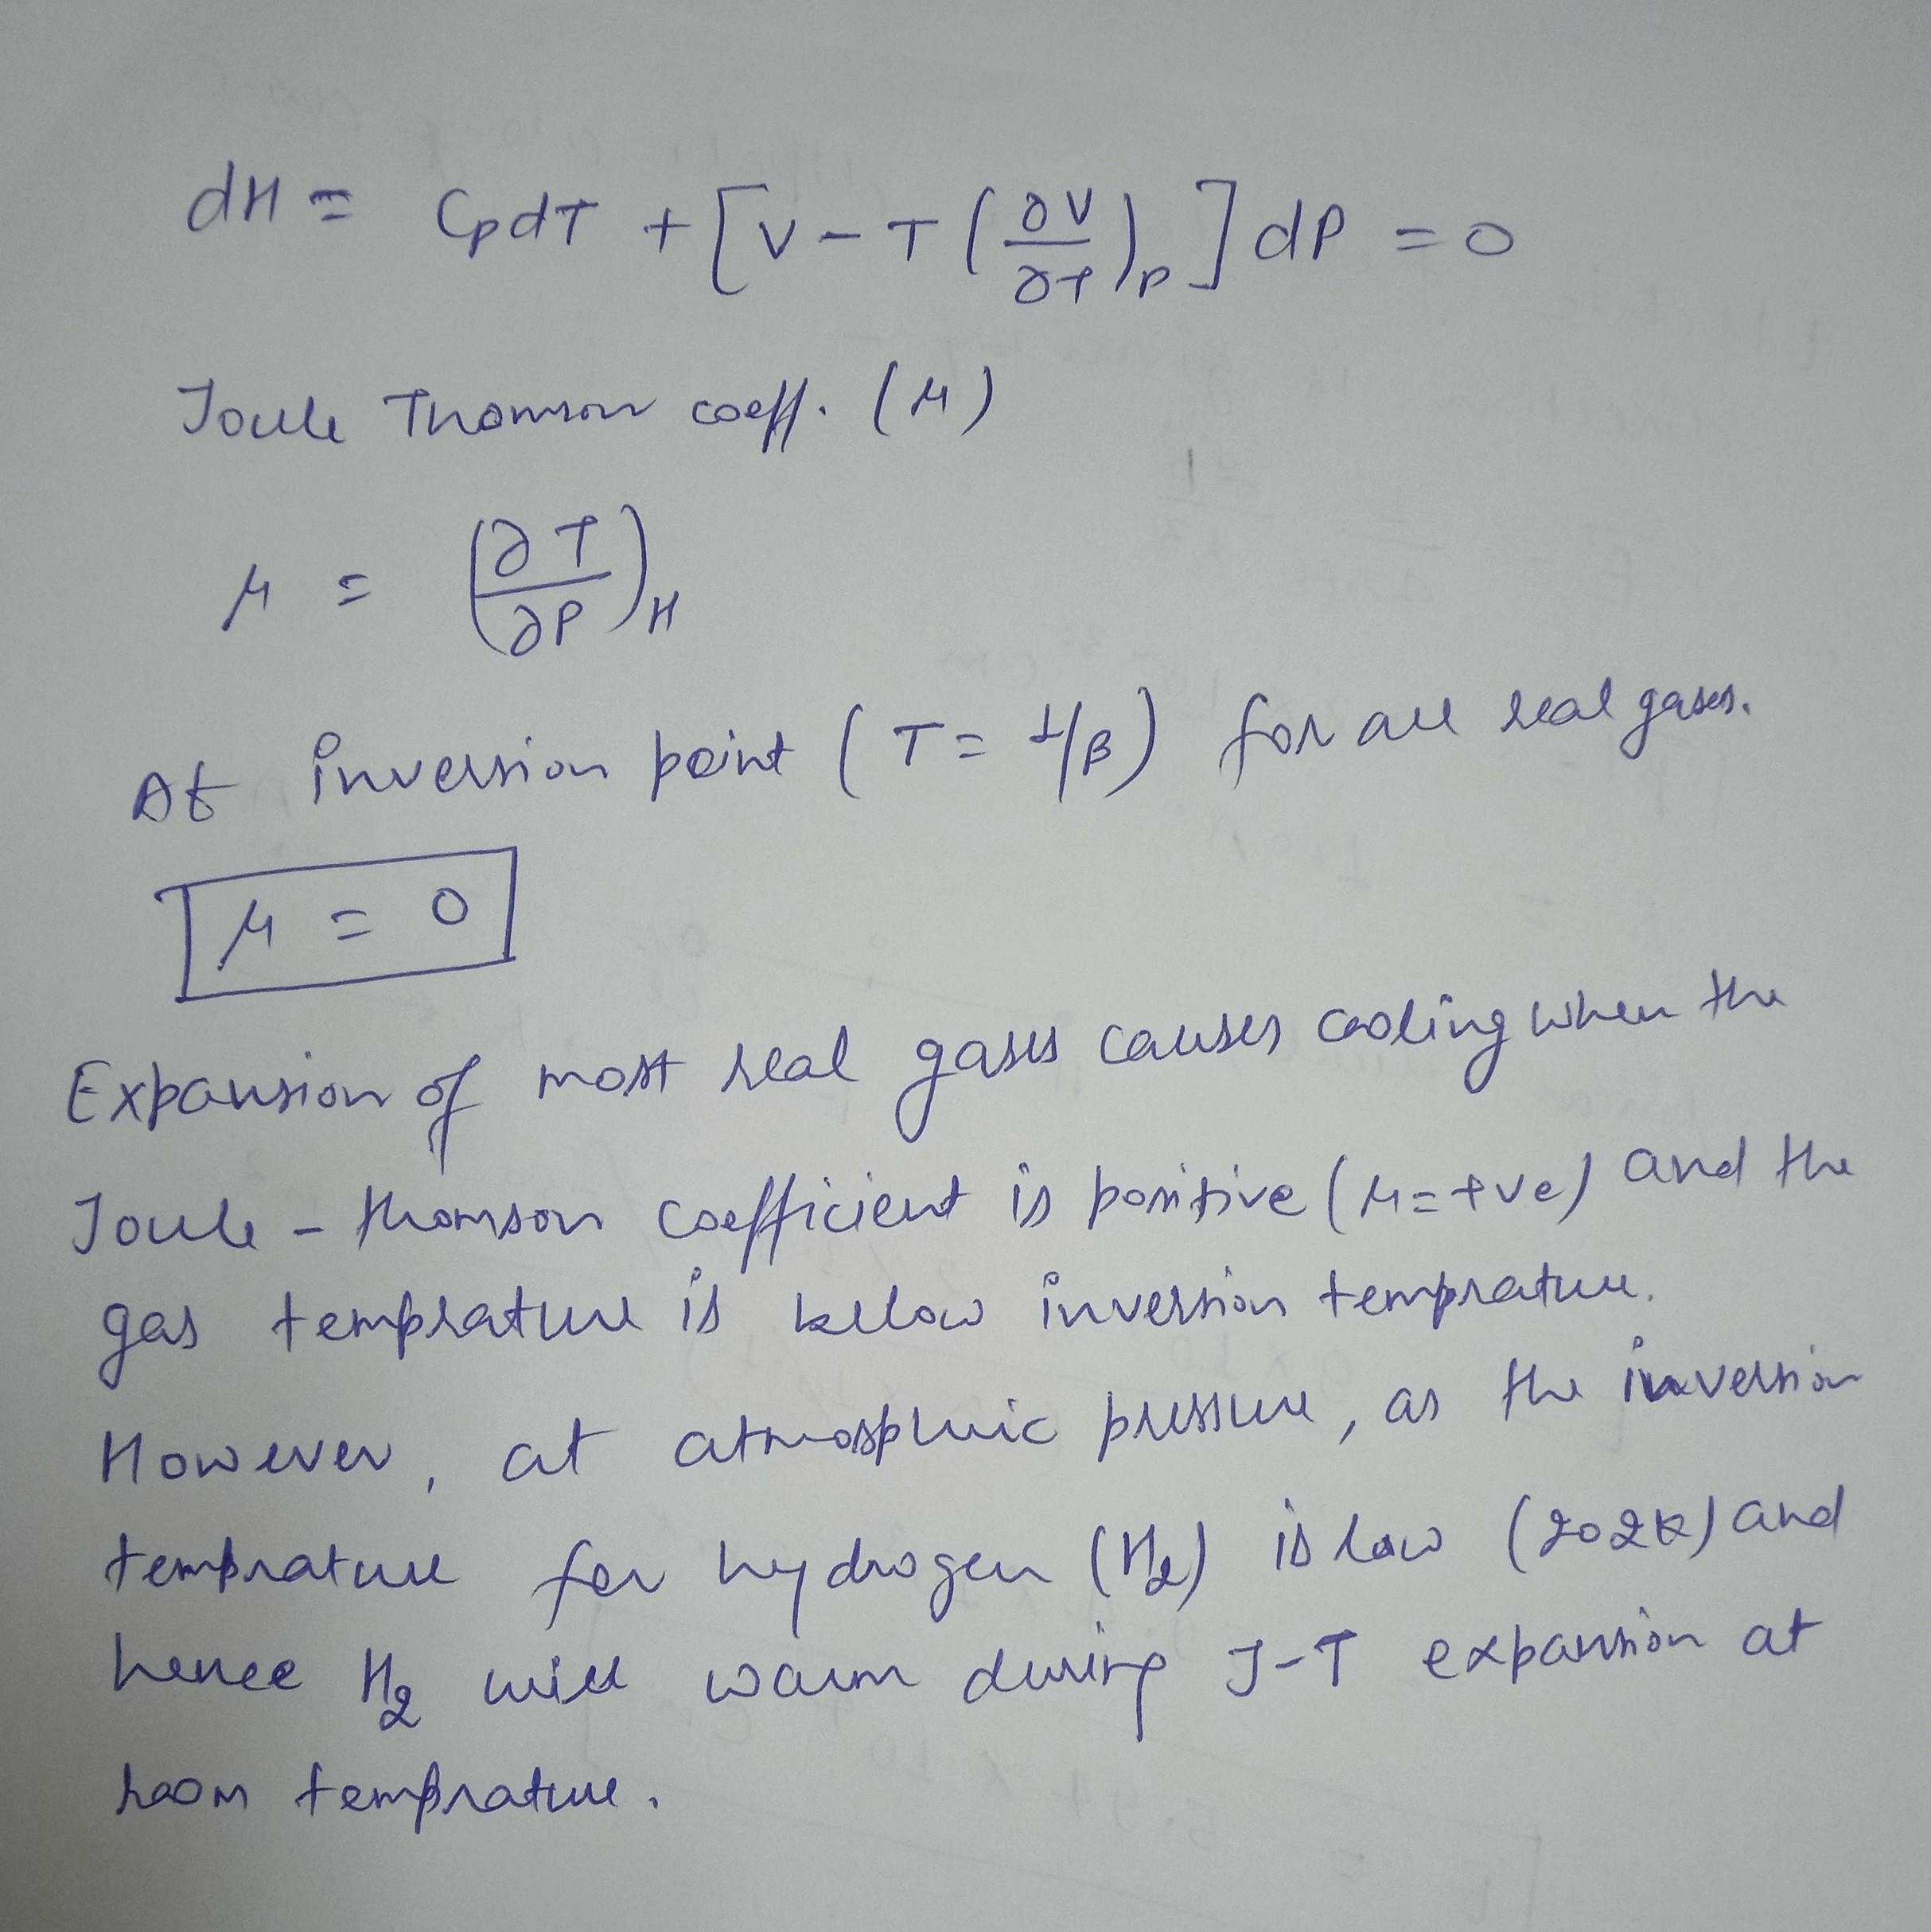 dH = CpdT + [V - T (∂V/∂T)P ] dP = 0
Joule Thomson coeff. (μ)
μ = (∂T/∂P)H
At inversion point ( T = 1/β ) for all real gases.
μ = 0
Expansion of most real gases causes cooling when the
Joule - thomson coefficient is positive (μ = +ve) and the
gas temprature is below inversion temprature.
However, at atmospheric pressure, as the inversion
temprature for hydrogen (H2) is low (202K) and
hence H2 will warm during J-T expansion at
room temprature.